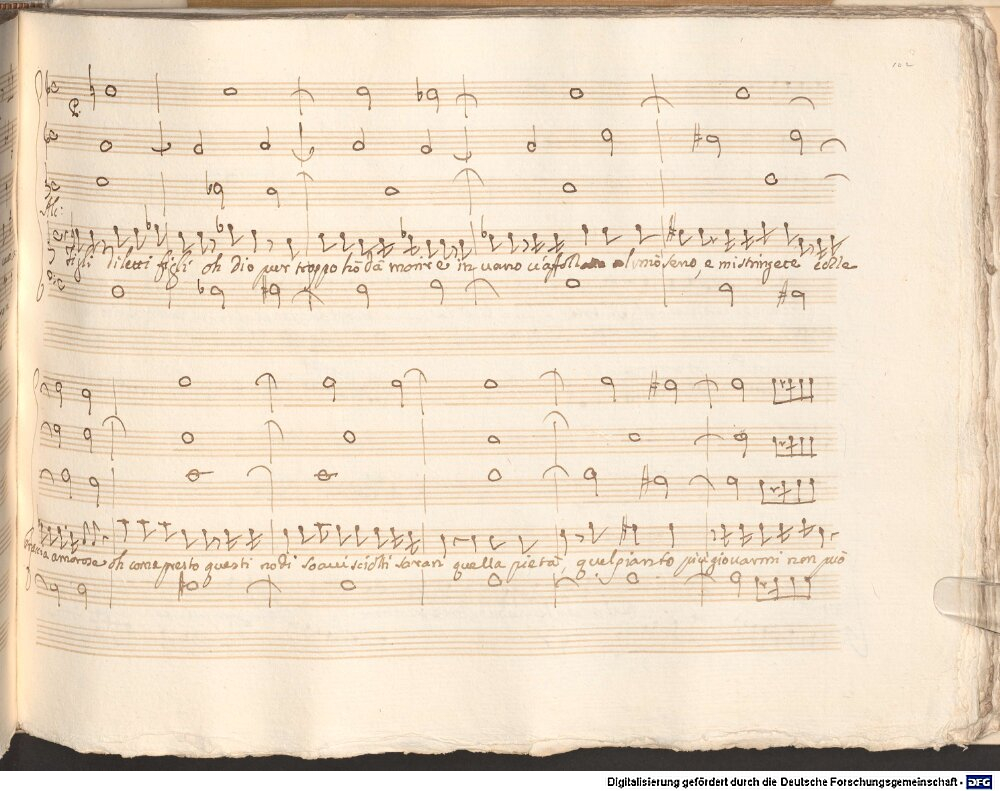 102
Alc:
figli diletti figli oh Dio pur troppo hò dà morire in vano v'affollate al mò seno, e mi stringete colle
braccia amorose oh come presto questi nodi soavi sciolti saran quella pietà, quel pianto più giovarmi non può
Digitalisierung gefördert durch die Deutsche Forschungsgemeinschaft - DFG